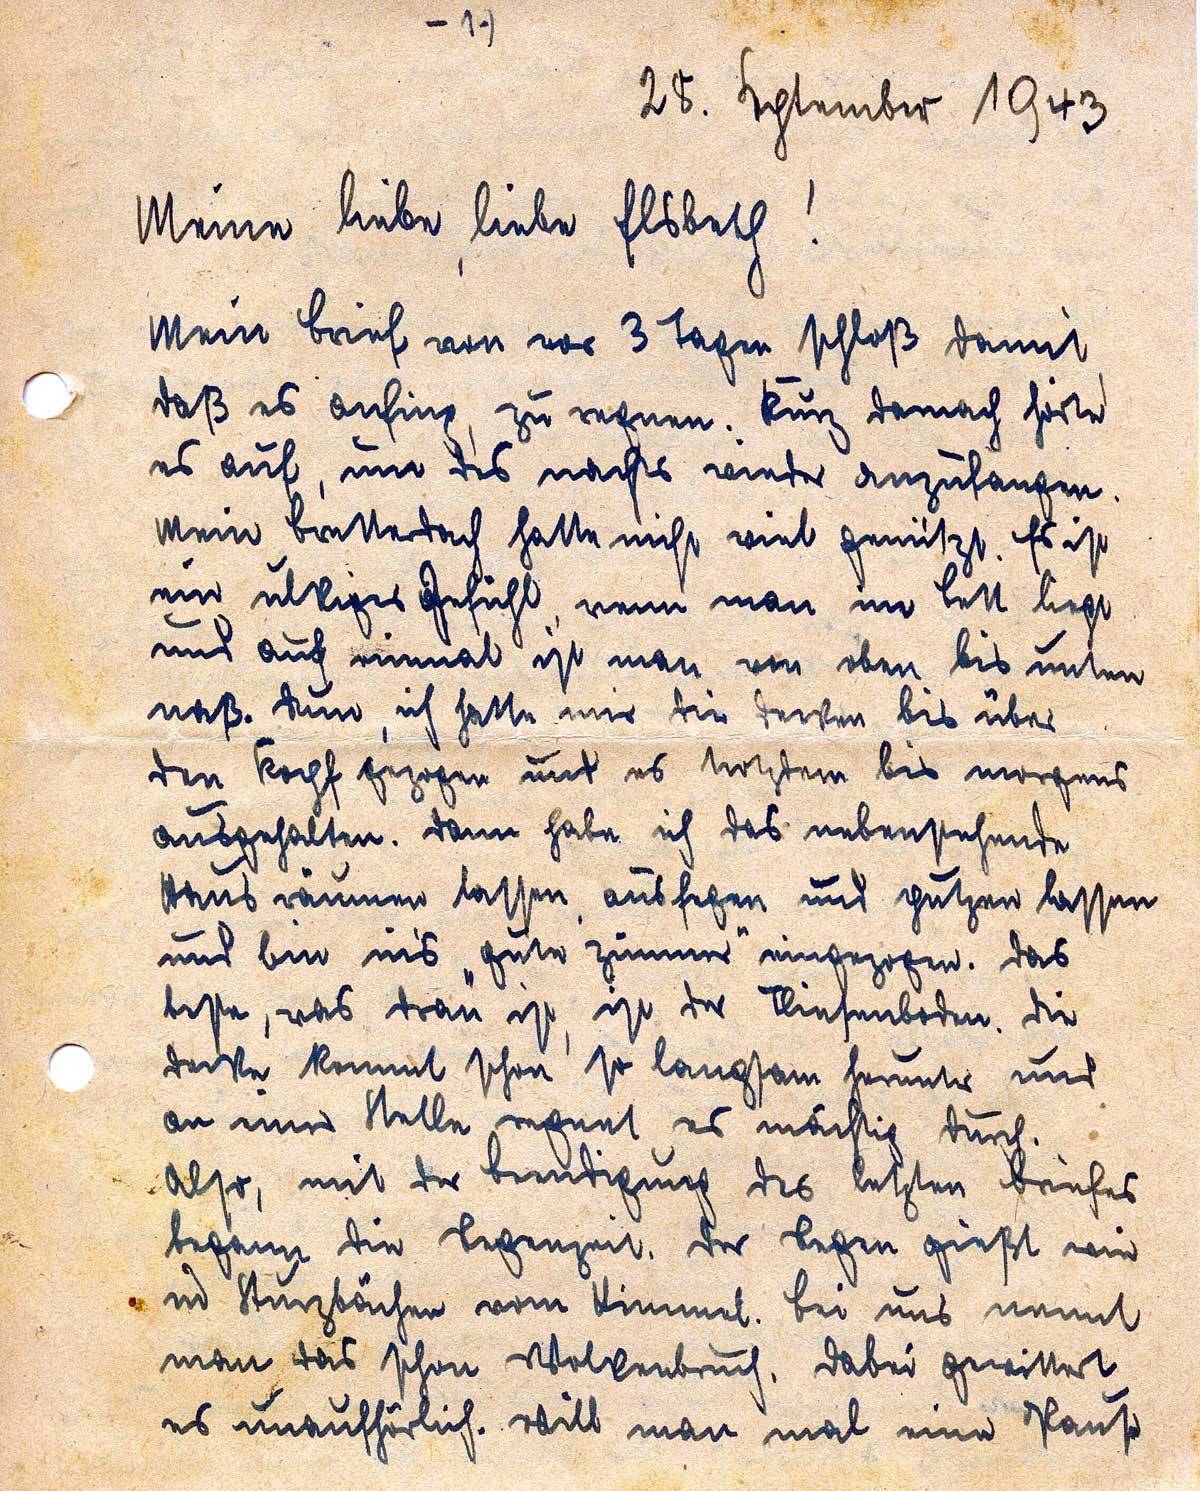 - 1.)
28. September 1943
Meine liebe, liebe Elsbeth!
Mein Brief von vor 3 Tagen schloß damit,
daß es anfing, zu regnen. Kurz danach hörte
es auf, um des nachts wieder anzufangen.
Mein Bretterdach hatte nicht viel genützt. Es ist
ein ulkiges Gefühl, wenn man im Bett liegt
und auf einmal ist man von oben bis unten
naß. Nun, ich hatte mir die Decken bis über
den Kopf gezogen und es trotzdem bis morgens
ausgehalten. Dann habe ich das nebenstehende
Haus räumen lassen, ausfegen und putzen lassen
und bin ins „gute Zimmer" eingezogen. Das
beste, was dran ist, ist der Fliesenboden. Die
Decke kommt schon so langsam herunter und
an einer Stelle regnet es mächtig durch.
Also, mit der Beendigung des letzten Briefes
begann die Regenzeit. Der Regen gießt wie
in Sturzbächen vom Himmel. Bei uns nennt
man das schon Wolkenbruch. Dabei gewittert
es unaufhörlich. Will man mal eine Pause